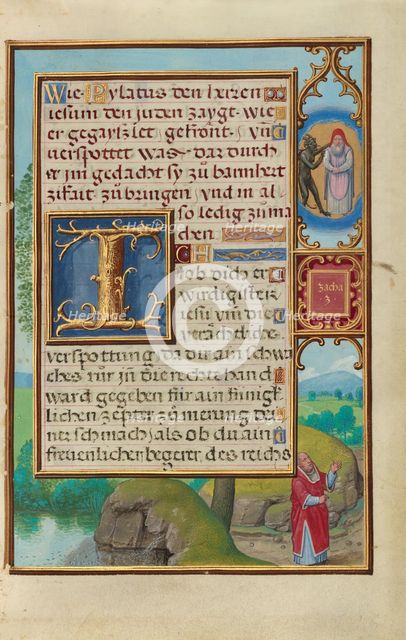 Wie Pylatus den herren
iesum den iuden zaygt wie
er gegayslet gekront vnd
verspottet was dar durch
er im gedacht sy zu barmhert
zikait zu bringen vnd in al
so ledig zuma
chen
Ich
lob dich er
wirdigister
iesu vm die
verachtliche
verspottung da dir ain schwa
ches ror in die rechte hand
ward gegeben für ain künigk
lichen zepter zu merung dei
ner schmach als ob du ain
freuenlicher begerer des reichs
zacha
3